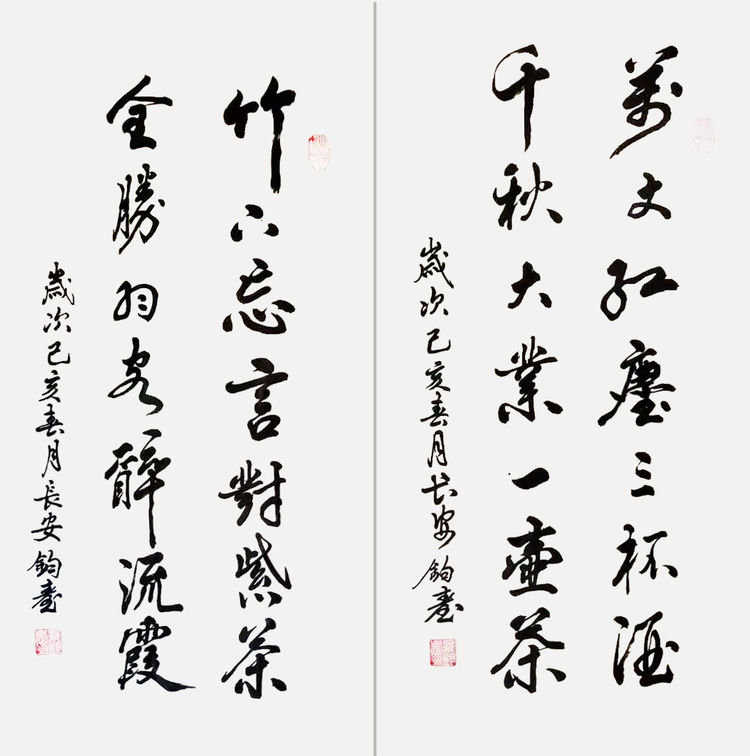 萬丈紅塵三杯酒
千秋大業一壺茶
歲次己亥春月長安鈞書
竹下忘言對紫茶
全勝羽客醉流霞
歲次己亥春月長安鈞書